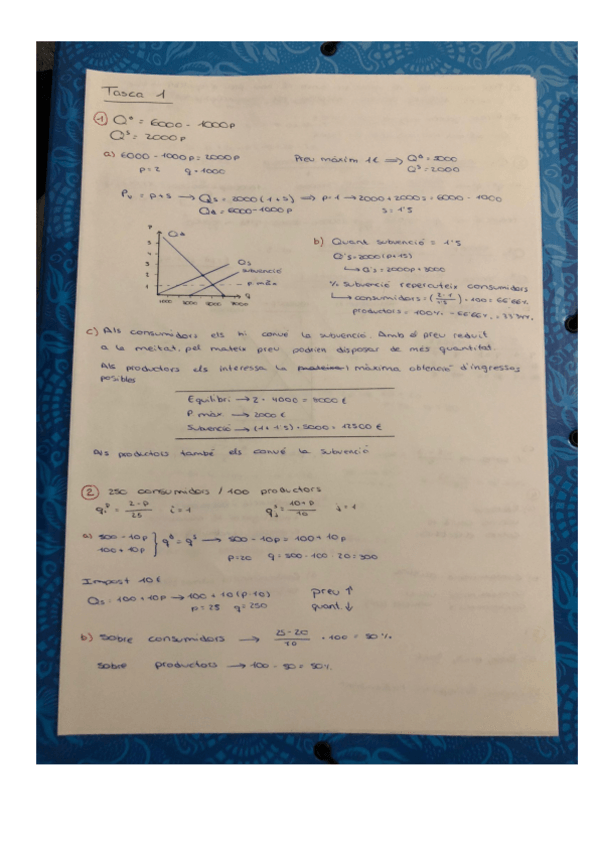 Tasca 1
1 Qᴰ = 6000 - 1000p
Qˢ = 2000p
a) 6000 - 1000p = 2000p Preu màxim 1€ ⟹ Qᴰ = 5000
p=2 q=4000 Qˢ = 2000
Pv = p+s → Qs = 2000(1+s) ⟹ p=1 → 2000+2000s = 6000 - 1000
Qd = 6000-1000p s = 1'5
P
Qd
5
4
3
2
1
Qs
subvenció
p màx
q
b) Quant subvenció = 1'5
Q's = 2000(p+1'5)
↳ Q's = 2000p + 3000
% subvenció repercuteix consumidors
↳ consumidors = (2-1/1'5) · 100 = 66'66%
productors = 100% - 66'66% = 33'34%
c) Als consumidors els hi convé la subvenció. Amb el preu reduït
a la meitat, pel mateix preu podrien disposar de més quantitat.
Als productors els interessa la màxima obtenció d'ingressos
possibles
Equilibri → 2 · 4000 = 8000€
P màx. → 2000€
Subvenció → (1+1'5) · 5000 = 12500€
Als productors també els convé la subvenció
2 250 consumidors / 100 productors
i=1 j=1
a) 500 - 10p } qᵈ = qˢ → 500 - 10p = 100 + 10p
100 + 10p
p=20 q = 500 - 10 · 20 = 300
Impost 10€
Qs = 100 + 10p → 100 + 10(p-10) preu ↑
p = 25 q = 250 quant. ↓
b) Sobre consumidors → 25-20/10 · 100 = 50%
sobre productors → 100 - 50 = 50%.